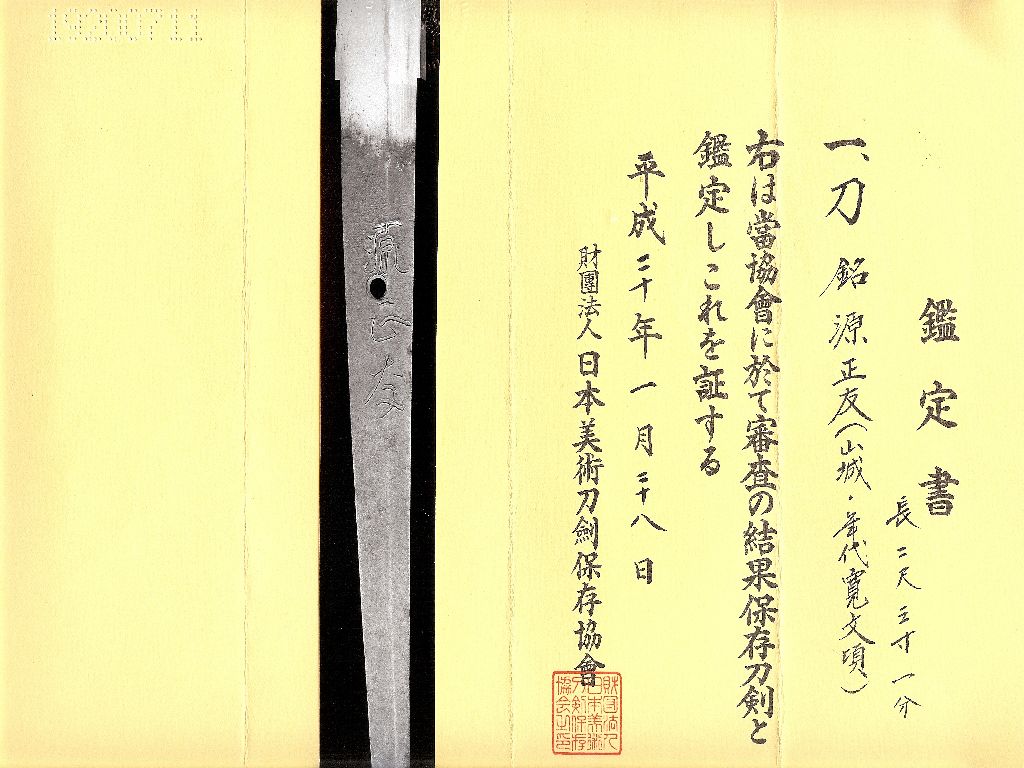 鑑定書
長二尺三寸一分
一、刀 銘 源正友(山城・年代寛文頃)
右は當協會に於て審査の結果保存刀剣と
鑑定しこれを証する
平成二十年一月二十八日
財團法人日本美術刀劍保存協會
財団法人
日本美術
刀剣保存
協会之印
源正友
19200711